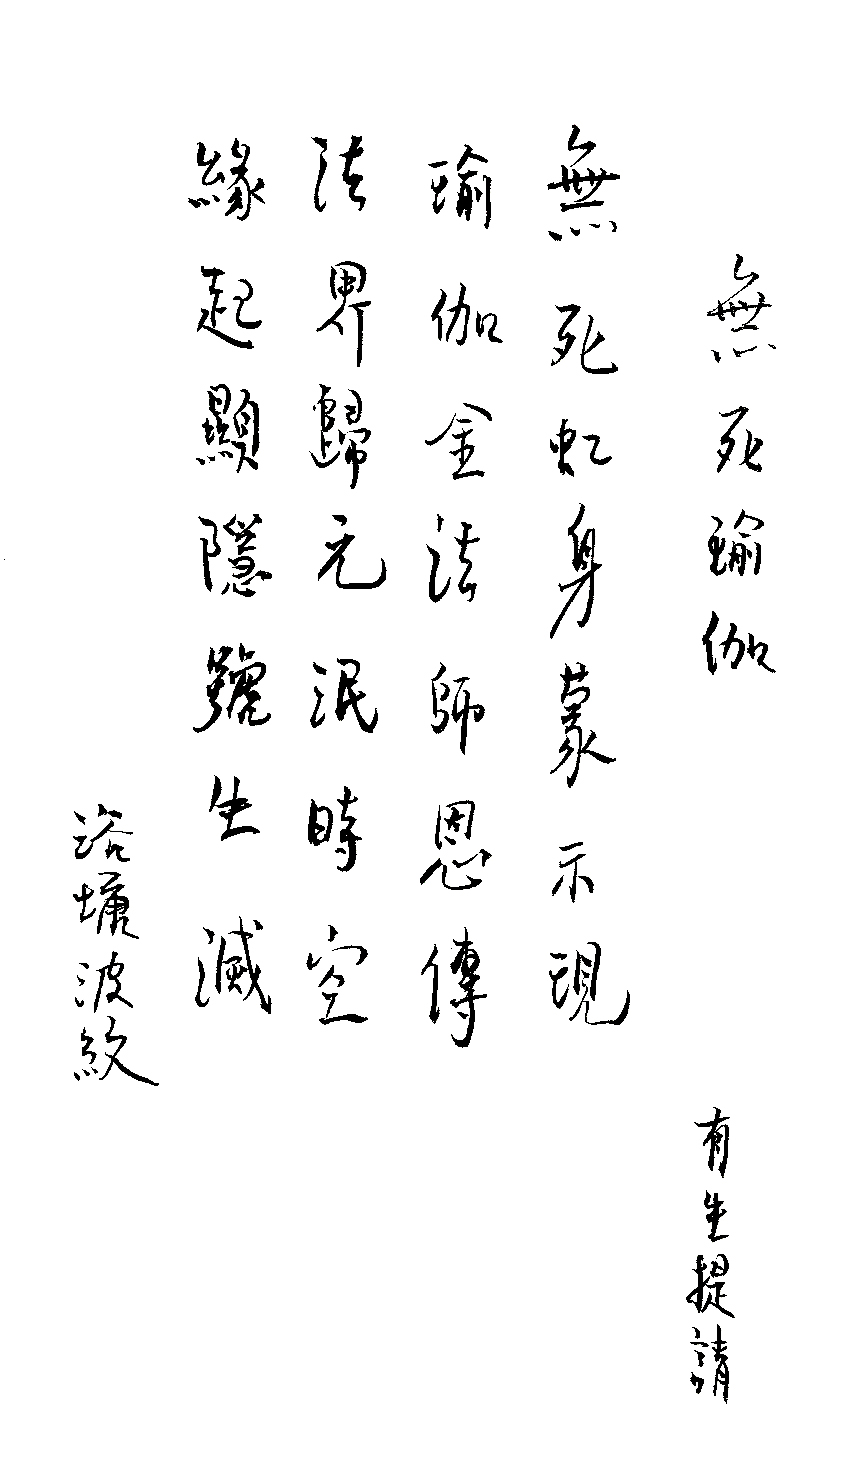 無死瑜伽
有生提請
無死虹身蒙示現
瑜伽金法師恩傳
法界歸元泯時空
緣起顯隱生滅
浴波紋